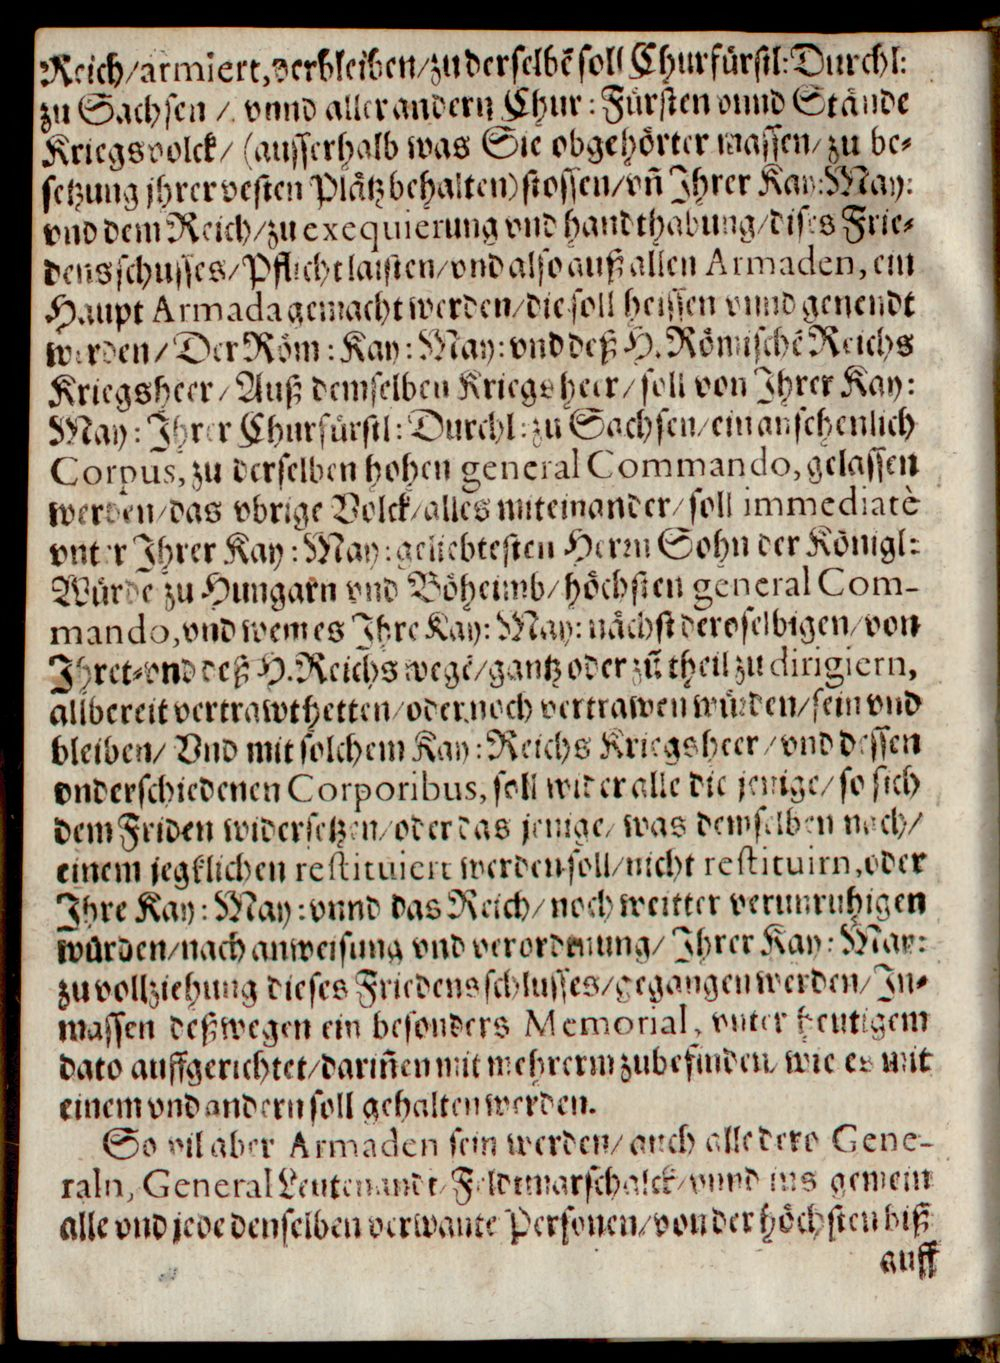 Reich/armiert, verbleiben/zu derselbẽ soll Churfürstl: Durchl:
zu Sachsen/ vnnd aller andern Chur: Fürsten vnnd Stände
Kriegsvolck/ (ausserhalb was Sie obgehörter massen/ zu be-
setzung jhrer vesten Plätz behalten) stossen/ vñ Ihrer Kay: May:
vnd dem Reich/ zu exequierung vnd handthabung/ dises Frie-
densschusses/ Pflicht laisten/ vnd also auß allen Armaden, ein
Haupt Armada gemacht werden/ die soll heissen vnnd genendt
werden/ Der Röm: Kay: May: vnd deß H. Römischẽ Reichs
Kriegsheer/ Auß demselben Kriegsheer/ soll von Ihrer Kay:
May: Ihrer Churfürstl: Durchl: zu Sachsen/ ein anschenlich
Corpus, zu derselben hohen general Commando, gelassen
werden/ das vbrige Volck/ alles miteinander/ soll immediatè
vnter Ihrer Kay: May: geliebtesten Herrn Sohn der Königl:
Würde zu Hungarn vnd Böheimb/ höchsten general Com-
mando, vnd wem es Ihre Kay: May: nächst deroselbigen/ von
Ihret- vnd deß H. Reichs wegẽ/ gantz oder zũ theil zu dirigiern,
allbereit vertrawt hetten/ oder noch vertrawen würden/ sein vnd
bleiben/ Vnd mit solchem Kay: Reichs Kriegsheer/ vnd dessen
vnderschiedenen Corporibus, soll wider alle die jenige/ so sich
dem Friden widersetzen/ oder das jenige/ was demselben nach/
einem jegklichen restituiert werden soll/ nicht restituirn, oder
Ihre Kay: May: vnnd das Reich/ noch weitter verunruhigen
würden/ nach anweisung vnd verordnung/ Ihrer Kay: May:
zu vollziehung dieses Friedensschlusses/ gegangen werden/ In-
massen deßwegen ein besonders Memorial, vnter heutigem
dato auffgerichtet/ dariñen mit mehrerm zubefinden/ wie es mit
einem vnd andern soll gehalten werden.
So vil aber Armaden sein werden/ auch alle dero Gene-
raln, General Leutenandt/ Feldtmarschalck/ vnnd ins gemein
alle vnd jede denselben verwante Personen/ von der höchsten biß
auff